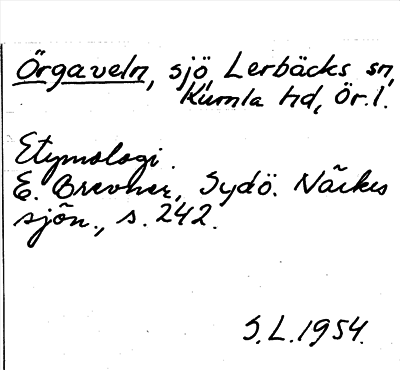 Örgaveln, sjö, Lerbäcks sn,
Kumla hd, Ör.l.
Etymologi.
E. Brevner, Sydö. Närkes
sjön., s. 242.
S.L. 1954.